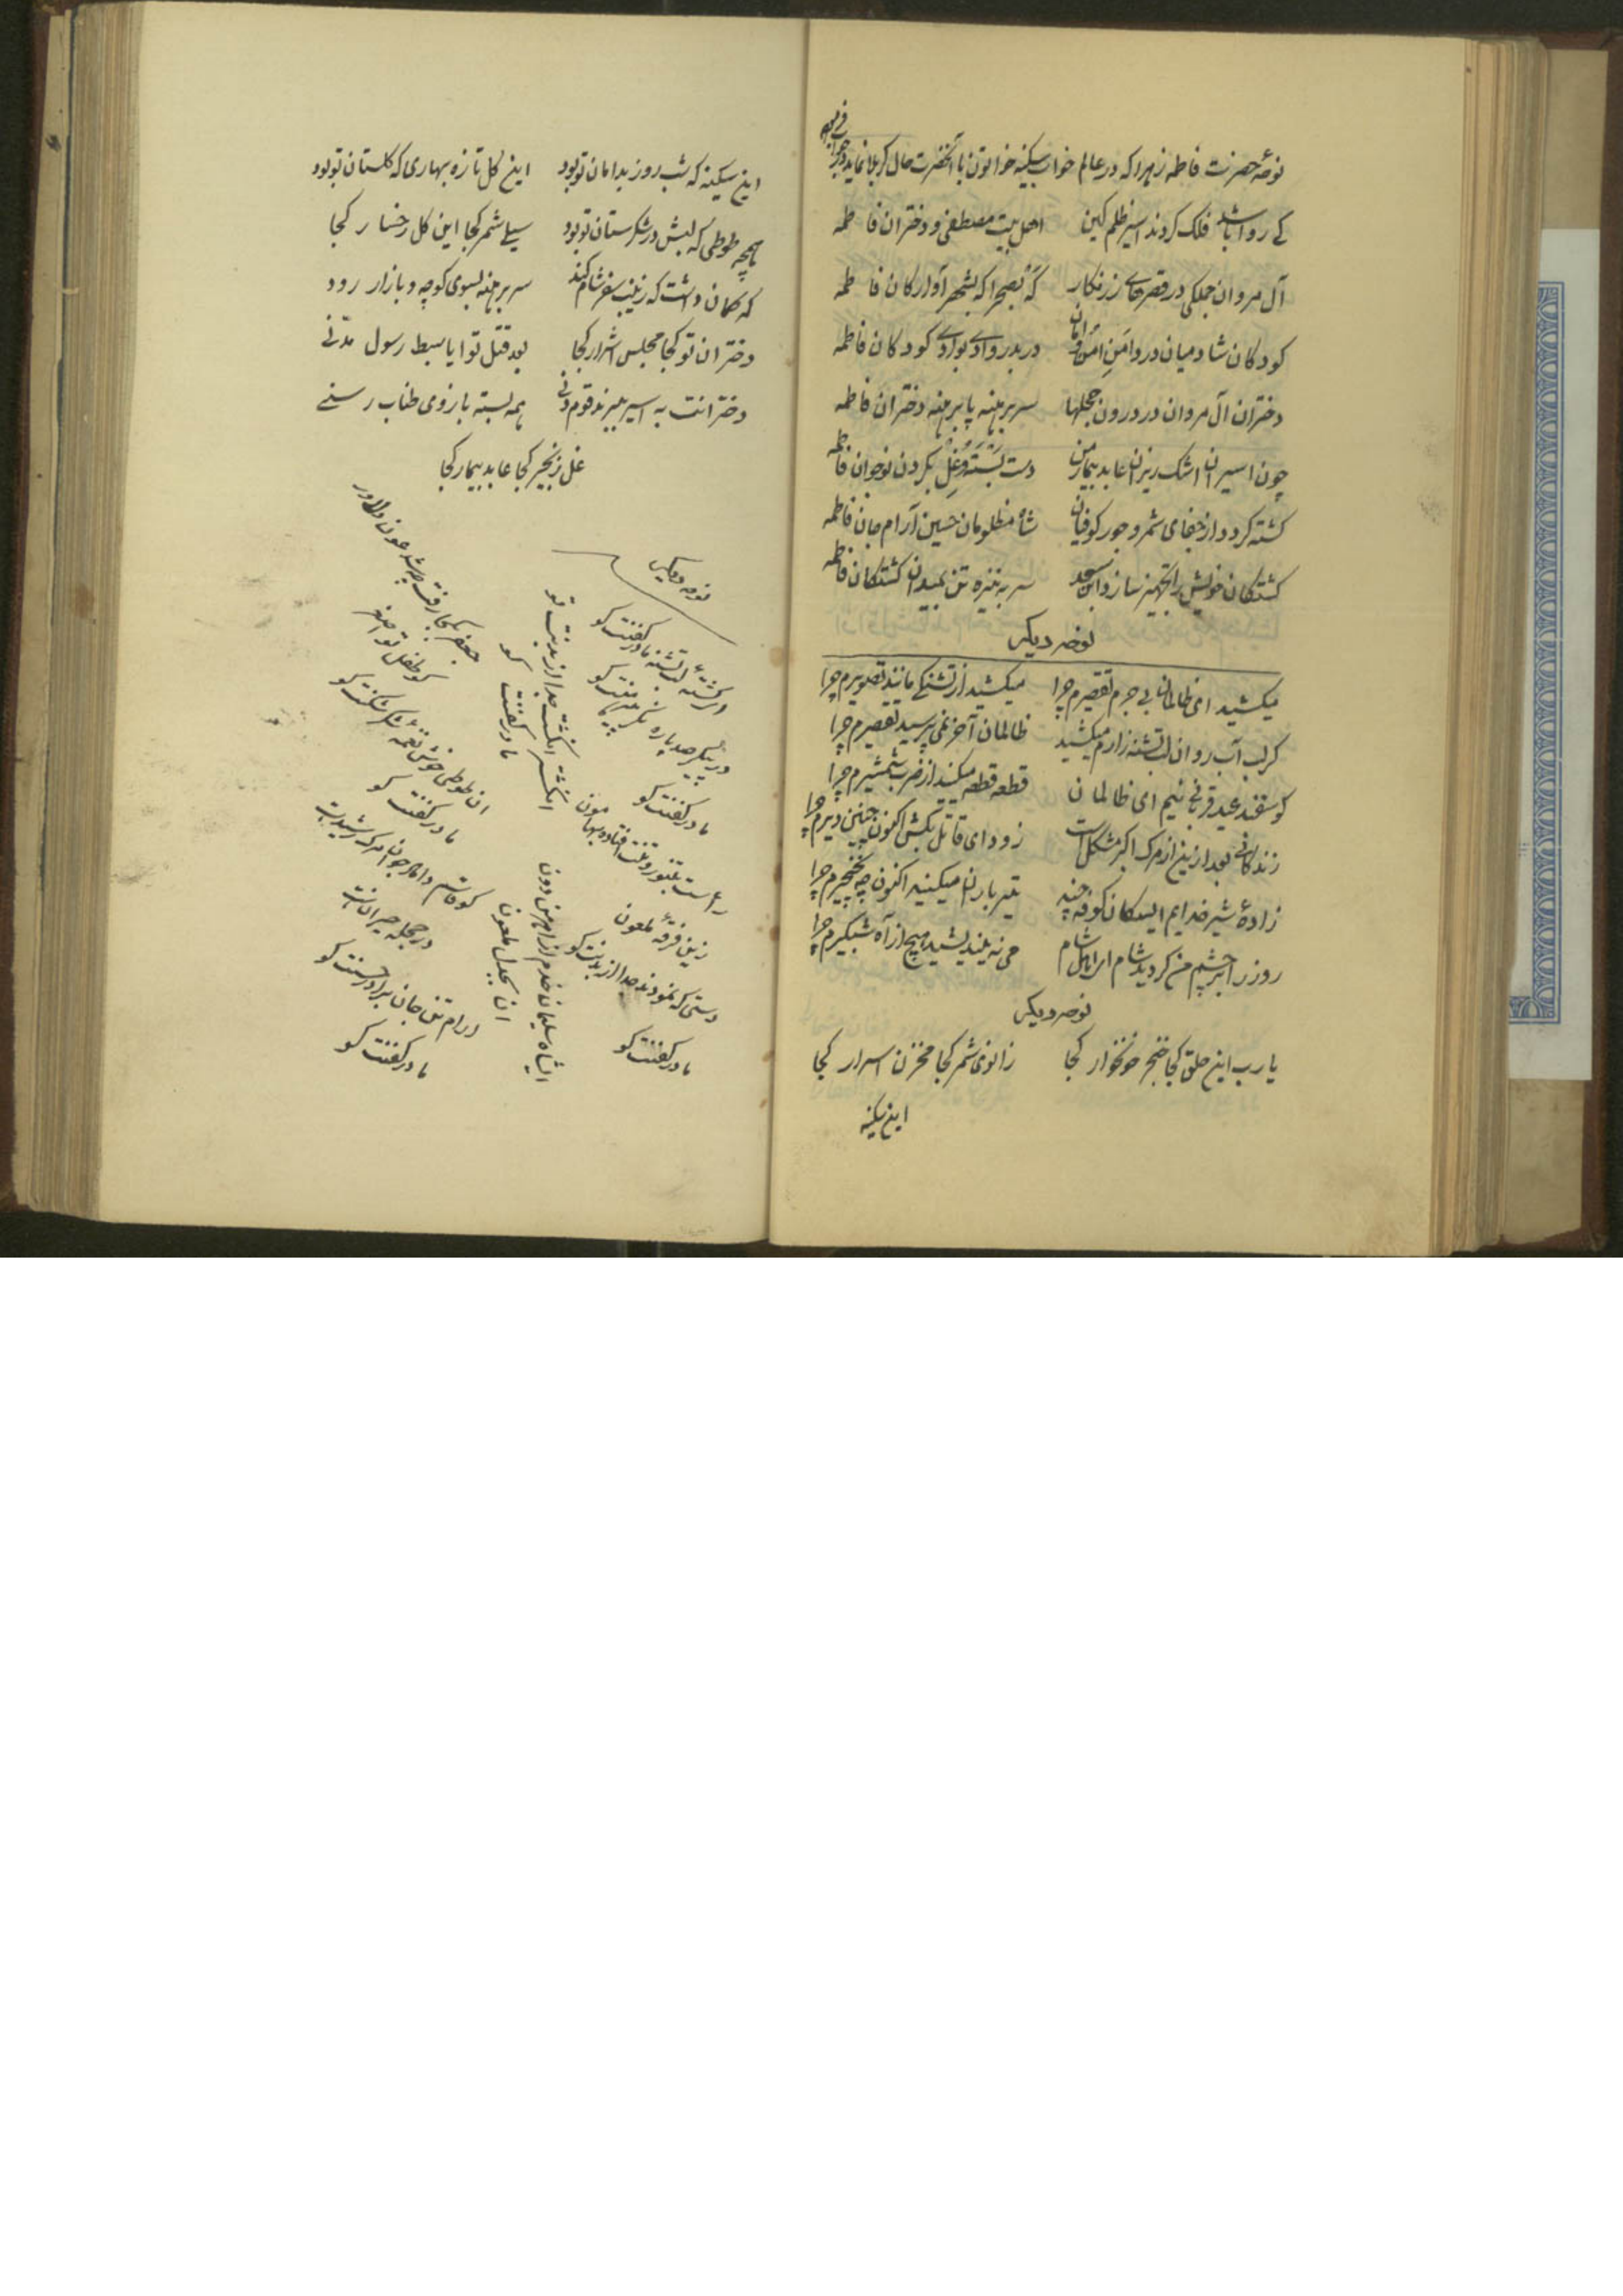 نوحهٔ حضرت فاطمه زهرا که در عالم خواب سکینه خواتون با آنحضرت حال کربلا نماید
کے روا باشد فلک کردند اسیر ظلم کین اهل بیت مصطفی و دختران فاطمه
آل مروان جملکی در قصرهاے زرنکار که بصحرا که بشهر آوارکان فاطمه
کودکان شادمیان در دامن امن و امان در بدر وادے بوادے کودکان فاطمه
دختران آل مروان در درون حجلها سر برهنه پا برهنه دختران فاطمه
چون اسیران اشک ریزان عابد بیمار من دست بسته و غل بکردن نوخوان فاطمه
کشته کردد از جفای شمر و جور کوفیان شاه مظلومان حسین آرام جان فاطمه
کشتکان خویش را تجهیز سازد ابن سعد سر به نیزه تن بمیدان کشتکان فاطمه
نوحه دیکر
میکشید ای ظالمان بے جرم تقصیرم چرا میکشید از تشنکے مانند تصویرم چرا
کر لب آب روان لب تشنه زارم میکشید ظالمان آخر نمی پرسید تقصیرم چرا
کوسفند عید قربانے نیم ای ظالمان قطعه قطعه میکنید از ضرب شمشیرم چرا
زندکانے بعد ازین از مرک اکبر مشکل است زود ای قاتل بکش اکنون چنین دیرم چرا
زادهٔ شیر خدایم ای سکان کوفه چند تیر باران میکنید اکنون چه نخچیرم چرا
روز را بر چشم من کردید شام ای اهل شام می نه یندیشید هیچ از آه شبکیرم چرا
نوحه دیکر
یا رب این حلق کجا خنجر خونخوار کجا زانوی شمر کجا مخزن اسرار کجا
این سکینه
این سکینه که شب روز بدامان تو بود این کل تازه بهاری که کلستان تو بود
همچه طوطی که لبش در شکرستان تو بود سیلے شمر کجا این کل رخسار کجا
که کمان داشت که زینب سفر شام کند سر برهنه بسوی کوچه و بازار رود
دختران تو کجا مجلس اشرار کجا بعد قتل تو ایا سبط رسول مدنے
دخترانت به اسیر میبرند قوم دنے همه بسته بازوی طناب رسنے
غل زنجیر کجا عابد بیمار کجا
نوحه دیکر
ای کشتهٔ لب تشنه مادر کفنت کو
در پیکر صد پاره نکر پیرهنت کو
مادر کفنت کو
انکشتر انکشت جدا از بدنت کو
مادر کفنت کو
رأست بتنور و تنت افتاده بهامون
زین فرقهٔ ملعون
دستی که نمودند جدا از بدنت کو
مادر کفنت کو
ایشاه سلیمان خدم از اهرمن دون
ان بجدل ملعون
جعفر بکجا رفت چه شد عون دلاور
کو طفل تو اصغر
ان طوطی خوش نغمه شکر شکنت کو
مادر کفنت کو
کو قاسم داماد جوان مرک رشیدت
در حجله
ارام تن جان برادر حسنت کو
مادر کفنت کو